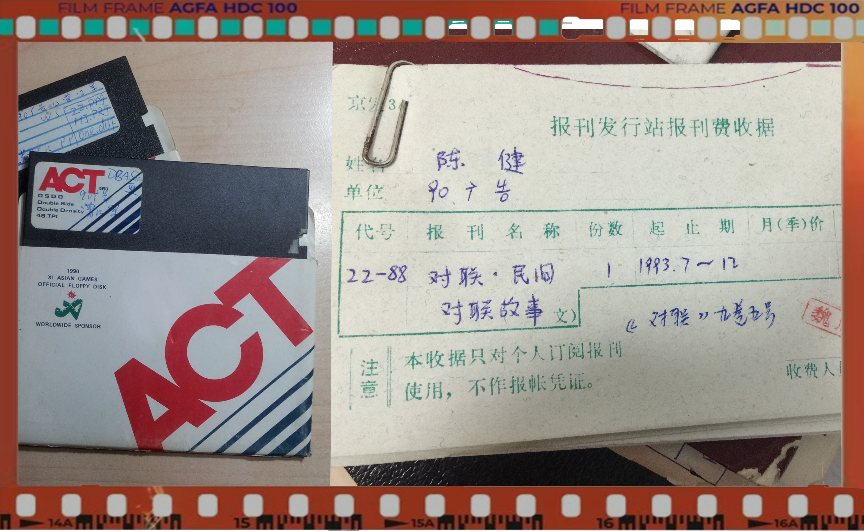 FILM FRAME AGFA HDC 100
FILM FRAME AGFA HDC 100
ACT
DSDD
Double Side
Double Density
48 TPI
1990
XI ASIAN GAMES
OFFICIAL FLOPPY DISK
WORLDWIDE SPONSOR
ACT
报刊发行站报刊费收据
陈 健
单位
代号 报刊名称 份数 起止期 月(季)价
22-88 对联·民间 1 1993.7~12
对联故事
《对联》
魏
注意
本收据只对个人订阅报刊
使用，不作报帐凭证。
收费人
14A 15 15A 16 16A